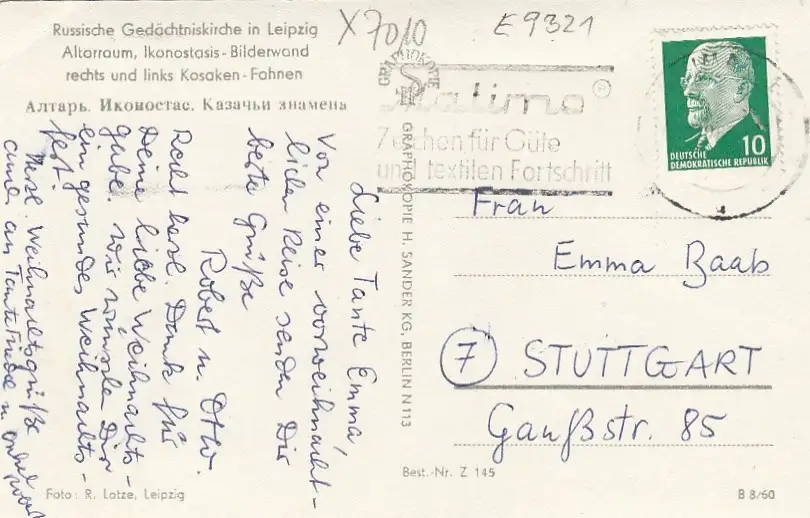 Russische Gedächtniskirche in Leipzig
Altarraum, Ikonostasis-Bilderwand
rechts und links Kosaken-Fahnen
Алтарь. Иконостас. Казачьи знамена
X 7010
E 9321
GRAPHOKOPIE
Malimo®
Zeichen für Güte
und textilen Fortschritt
10
DEUTSCHE
DEMOKRATISCHE REPUBLIK
Liebe Tante Emma,
Von einer vorweihnacht-
lichen Reise senden Dir
beste Grüße
Robert u. Otw.
Recht herzl. Dank für
Deine liebe Weihnachts-
gabe. Wir wünschen Dir
ein gesundes Weihnachts-
fest.
Weihnachtsgrüße
auch an Tante Friede u.
GRAPHOKOPIE H. SANDER KG, BERLIN N 113
Frau
Emma Raab
7 STUTTGART
Gaußstr. 85
Best.-Nr. Z 145
Foto: R. Lotze, Leipzig
B 8/60